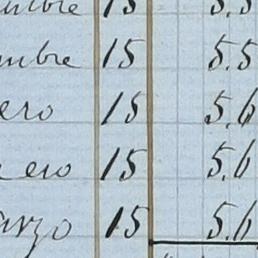 umbre 15 5.5
umbre 15 5.5
ero 15 5.6
ero 15 5.6
arzo 15 5.6